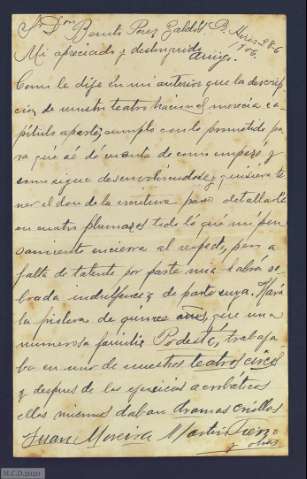 Sr Dn Benito Perez Galdós B. Aires 28-6
1906.
Mi apreciado y distinguido amigo.
Como le dije en mi anterior que la descrip-
cion de nuestro teatro nacional merecia ca-
pítulo aparte, cumplo con lo prometido pa-
ra que sé dé cuenta de como empezó, y
como sigue desenvolviendose, y quisiera te-
ner el don de la escritura para detallarle
en cuatro plumazos todo lo que mi pen-
samiento encierra al respecto, pero a
falta de talento por parte mia habrá so-
brada indulgencia de parte suya. Hará
la friolera de quince años, que una
numerosa familia Podestá, trabaja
ba en uno de nuestros teatros circos
y despues de los ejercicios acrobáticos
ellos mismos daban dramas criollos
Juan Moreira Martin Fierro
y otros